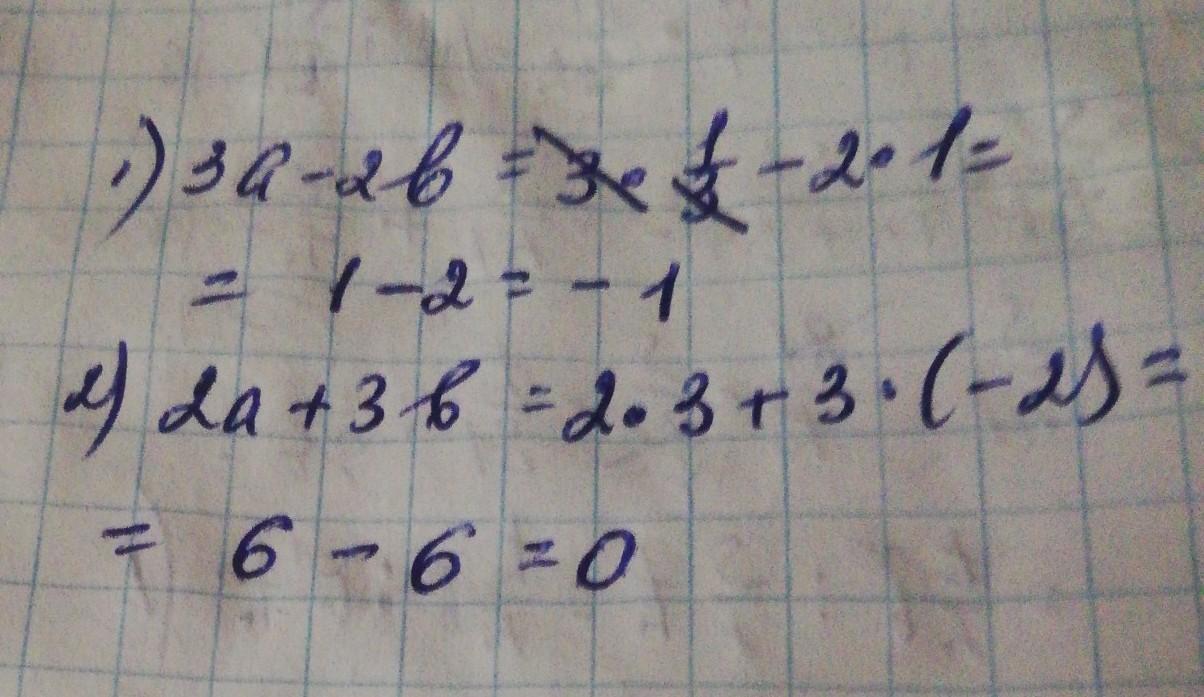 1) 3a - 2b = 3 · 1/3 - 2 · 1 =
= 1 - 2 = - 1
2) 2a + 3b = 2 · 3 + 3 · (- 2) =
= 6 - 6 = 0